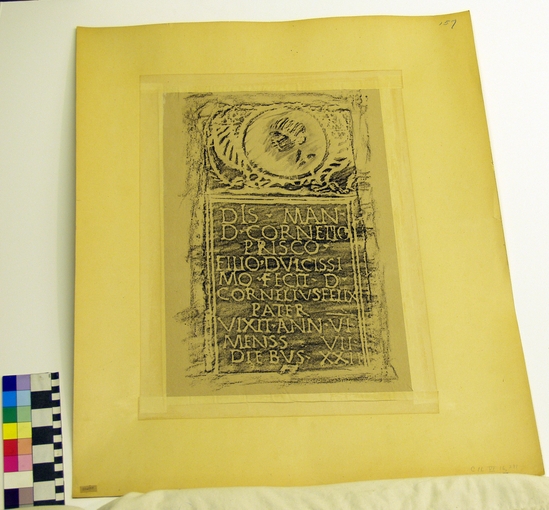 157
DIS · MAN
D · CORNELIO
PRISCO ·
FILIO · DVLCISSI
MO · FECIT · D
CORNELIVS FELIX
PATER
VIXIT · ANN · VI
MENSS VII
DIEBVS · XXI